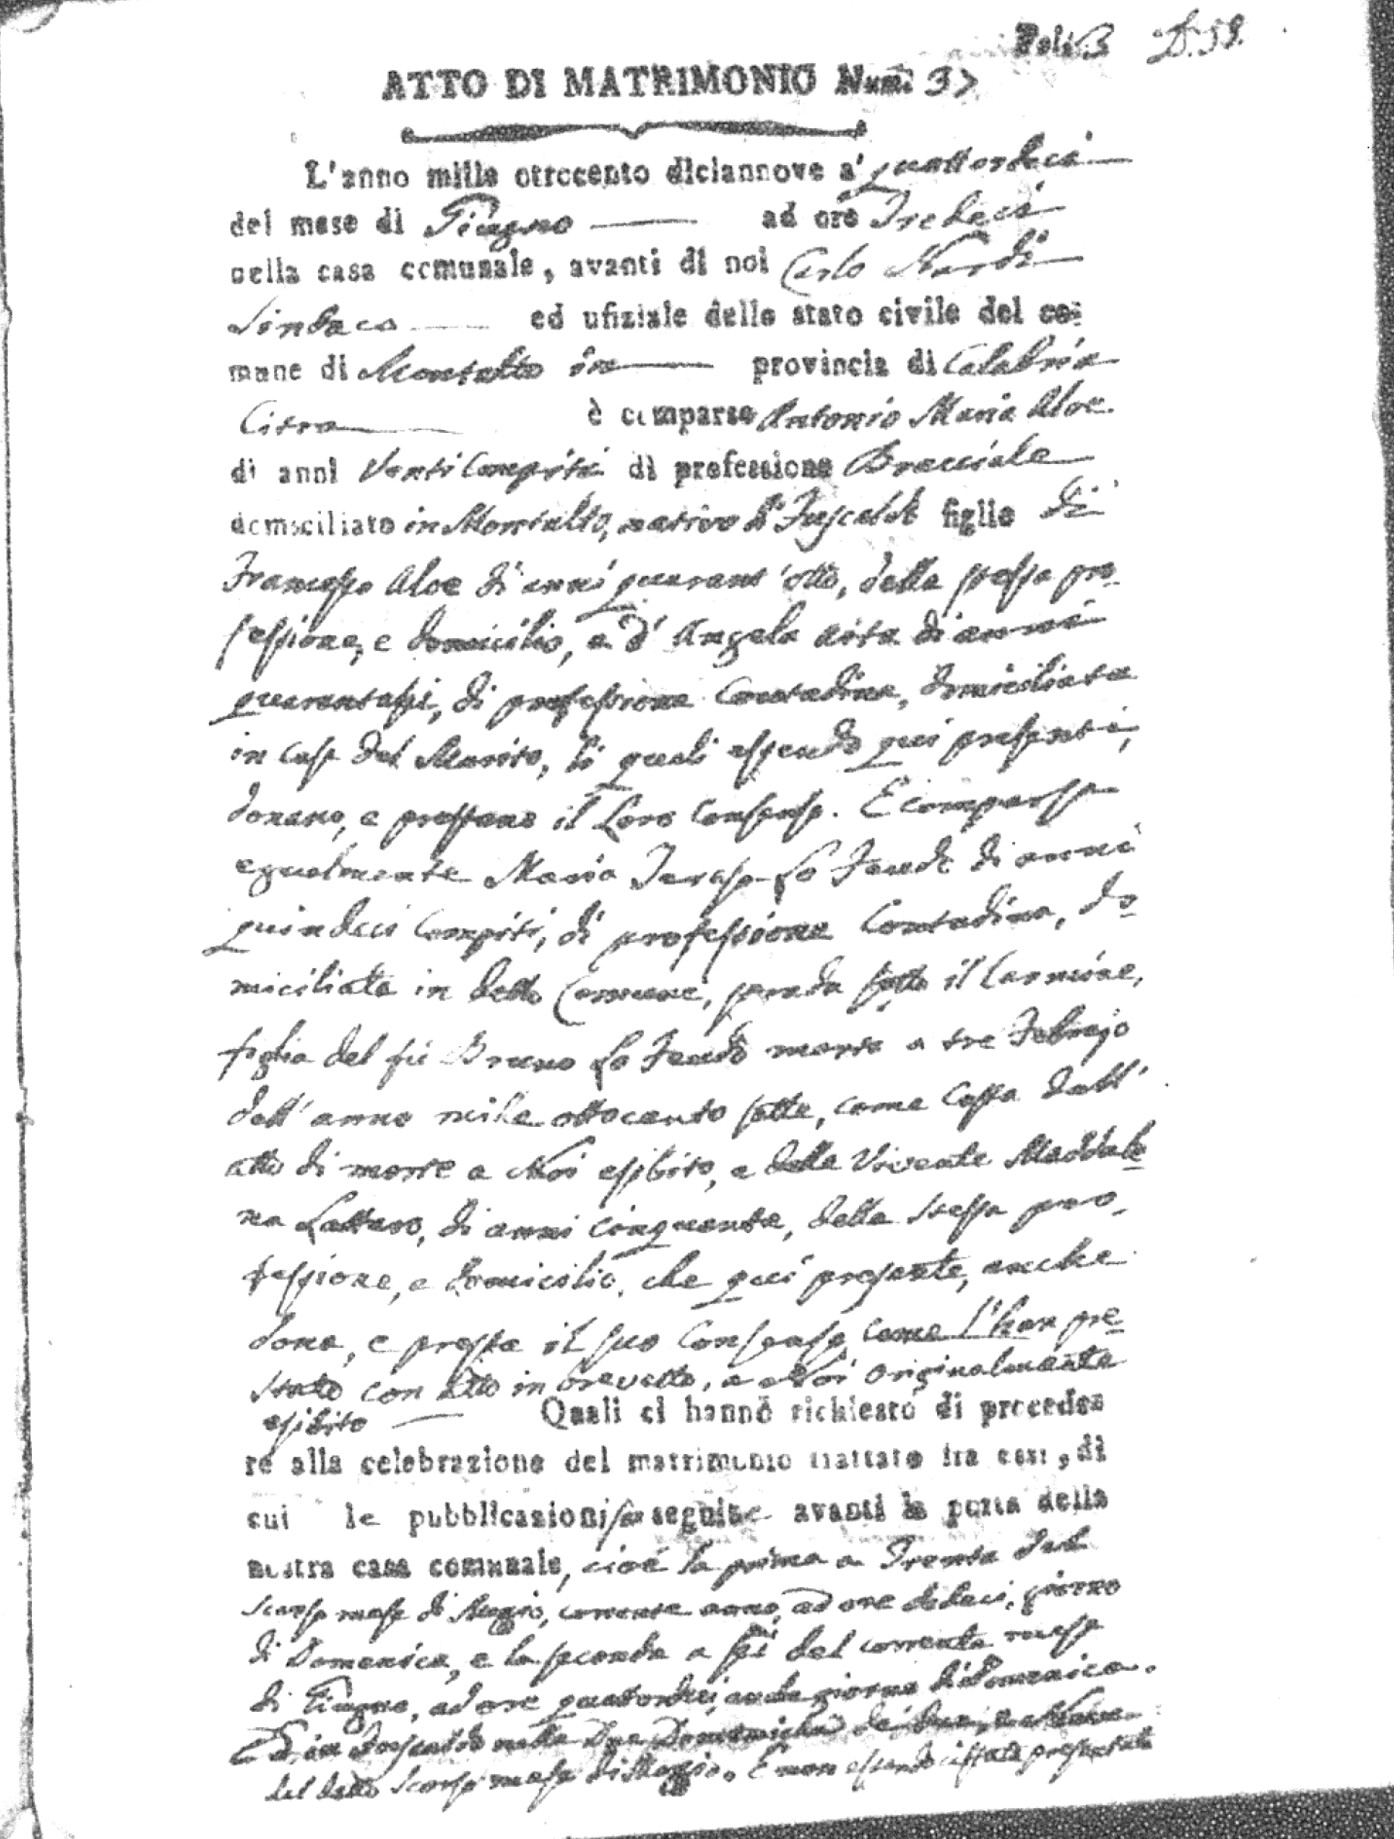 Fol. 3 D. 58.
ATTO DI MATRIMONIO Num. 37
L'anno mille ottocento diciannove a' quattordeci
del mese di Giugno ad ore Tredeci
nella casa comunale, avanti di noi Carlo Nardi
Sindaco ed ufiziale dello stato civile del co=
mune di Montalto in provincia di Calabria
Citra è comparso Antonio Maria Aloe
di anni Venti compiti di professione Bracciale
domiciliato in Montalto, nativo di Fuscaldo figlio di
Francesco Aloe di anni quarant'otto, della stessa pro-
fessione, e domicilio, e d' Angela Aita di anni
quarantasei, di professione Contadina, domiciliata
in casa del Marito, li quali essendo qui presenti,
donano, e prestano il Loro Consenso. È comparsa
egualmente Maria Teresa Lo Feudo di anni
quindeci compiti, di professione Contadina, do-
miciliata in detto Comune, strada sotto il Carmine,
figlia del fù Bruno Lo Feudo morto a tre Febrajo
dell'anno mille ottocento sette, come Costa dall'
atto di morte a Noi esibito, e della Vivente Maddale-
na Lattaro, di anni cinquanta, della stessa pro-
fessione, e domicilio, che qui presente, anche
dona, e presta il suo Consenso come l'han pre-
stato con atto in brevetto, a Noi originalmente
esibito Quali ci hanno richiesto di procede=
re alla celebrazione del matrimonio trattato fra essi, di
cui le pubblicazioni son seguite avanti la porta della
nostra casa comunale, cioè la prima a Trenta del
scorso mese di Maggio, corrente anno, ad ore dodeci, giorno
di Domenica, e la seconda a sei del corrente mese
di Giugno, ad ore quattordeci anche giorno di Domenica.
Ed in Fuscaldo nelle Due Domeniche de' due, e Nove
del detto scorso mese di Maggio. E non essendo stata presentata